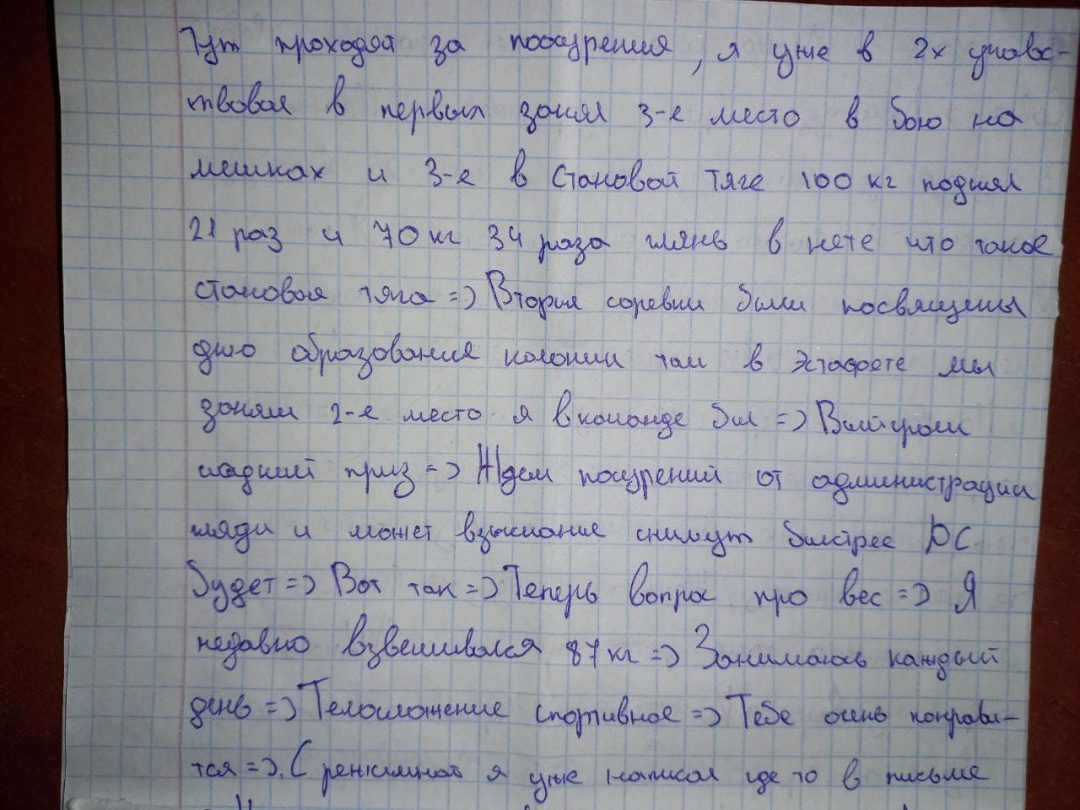 Тут проходят за поощрения, я уже в 2х учавс-
твовал в первых занял 3-е место в бою на
мешках и 3-е в становой тяге 100 кг поднял
21 раз и 70 кг 34 раза глянь в нете что такое
становая тяга => Вторые соревы были посвящены
дню образования колонии там в эстафете мы
заняли 2-е место я в команде был => Выйграли
сладкий приз => Ждем поощрений от администрации
гляди и может взыскание снимут быстрее ДС
будет => Вот так => Теперь вопрос про вес => Я
недавно взвешивался 87 кг => Занимаюсь каждый
день => Телосложение спортивное => Тебе очень понрави-
тся => С режимкой я уже написал где то в письме